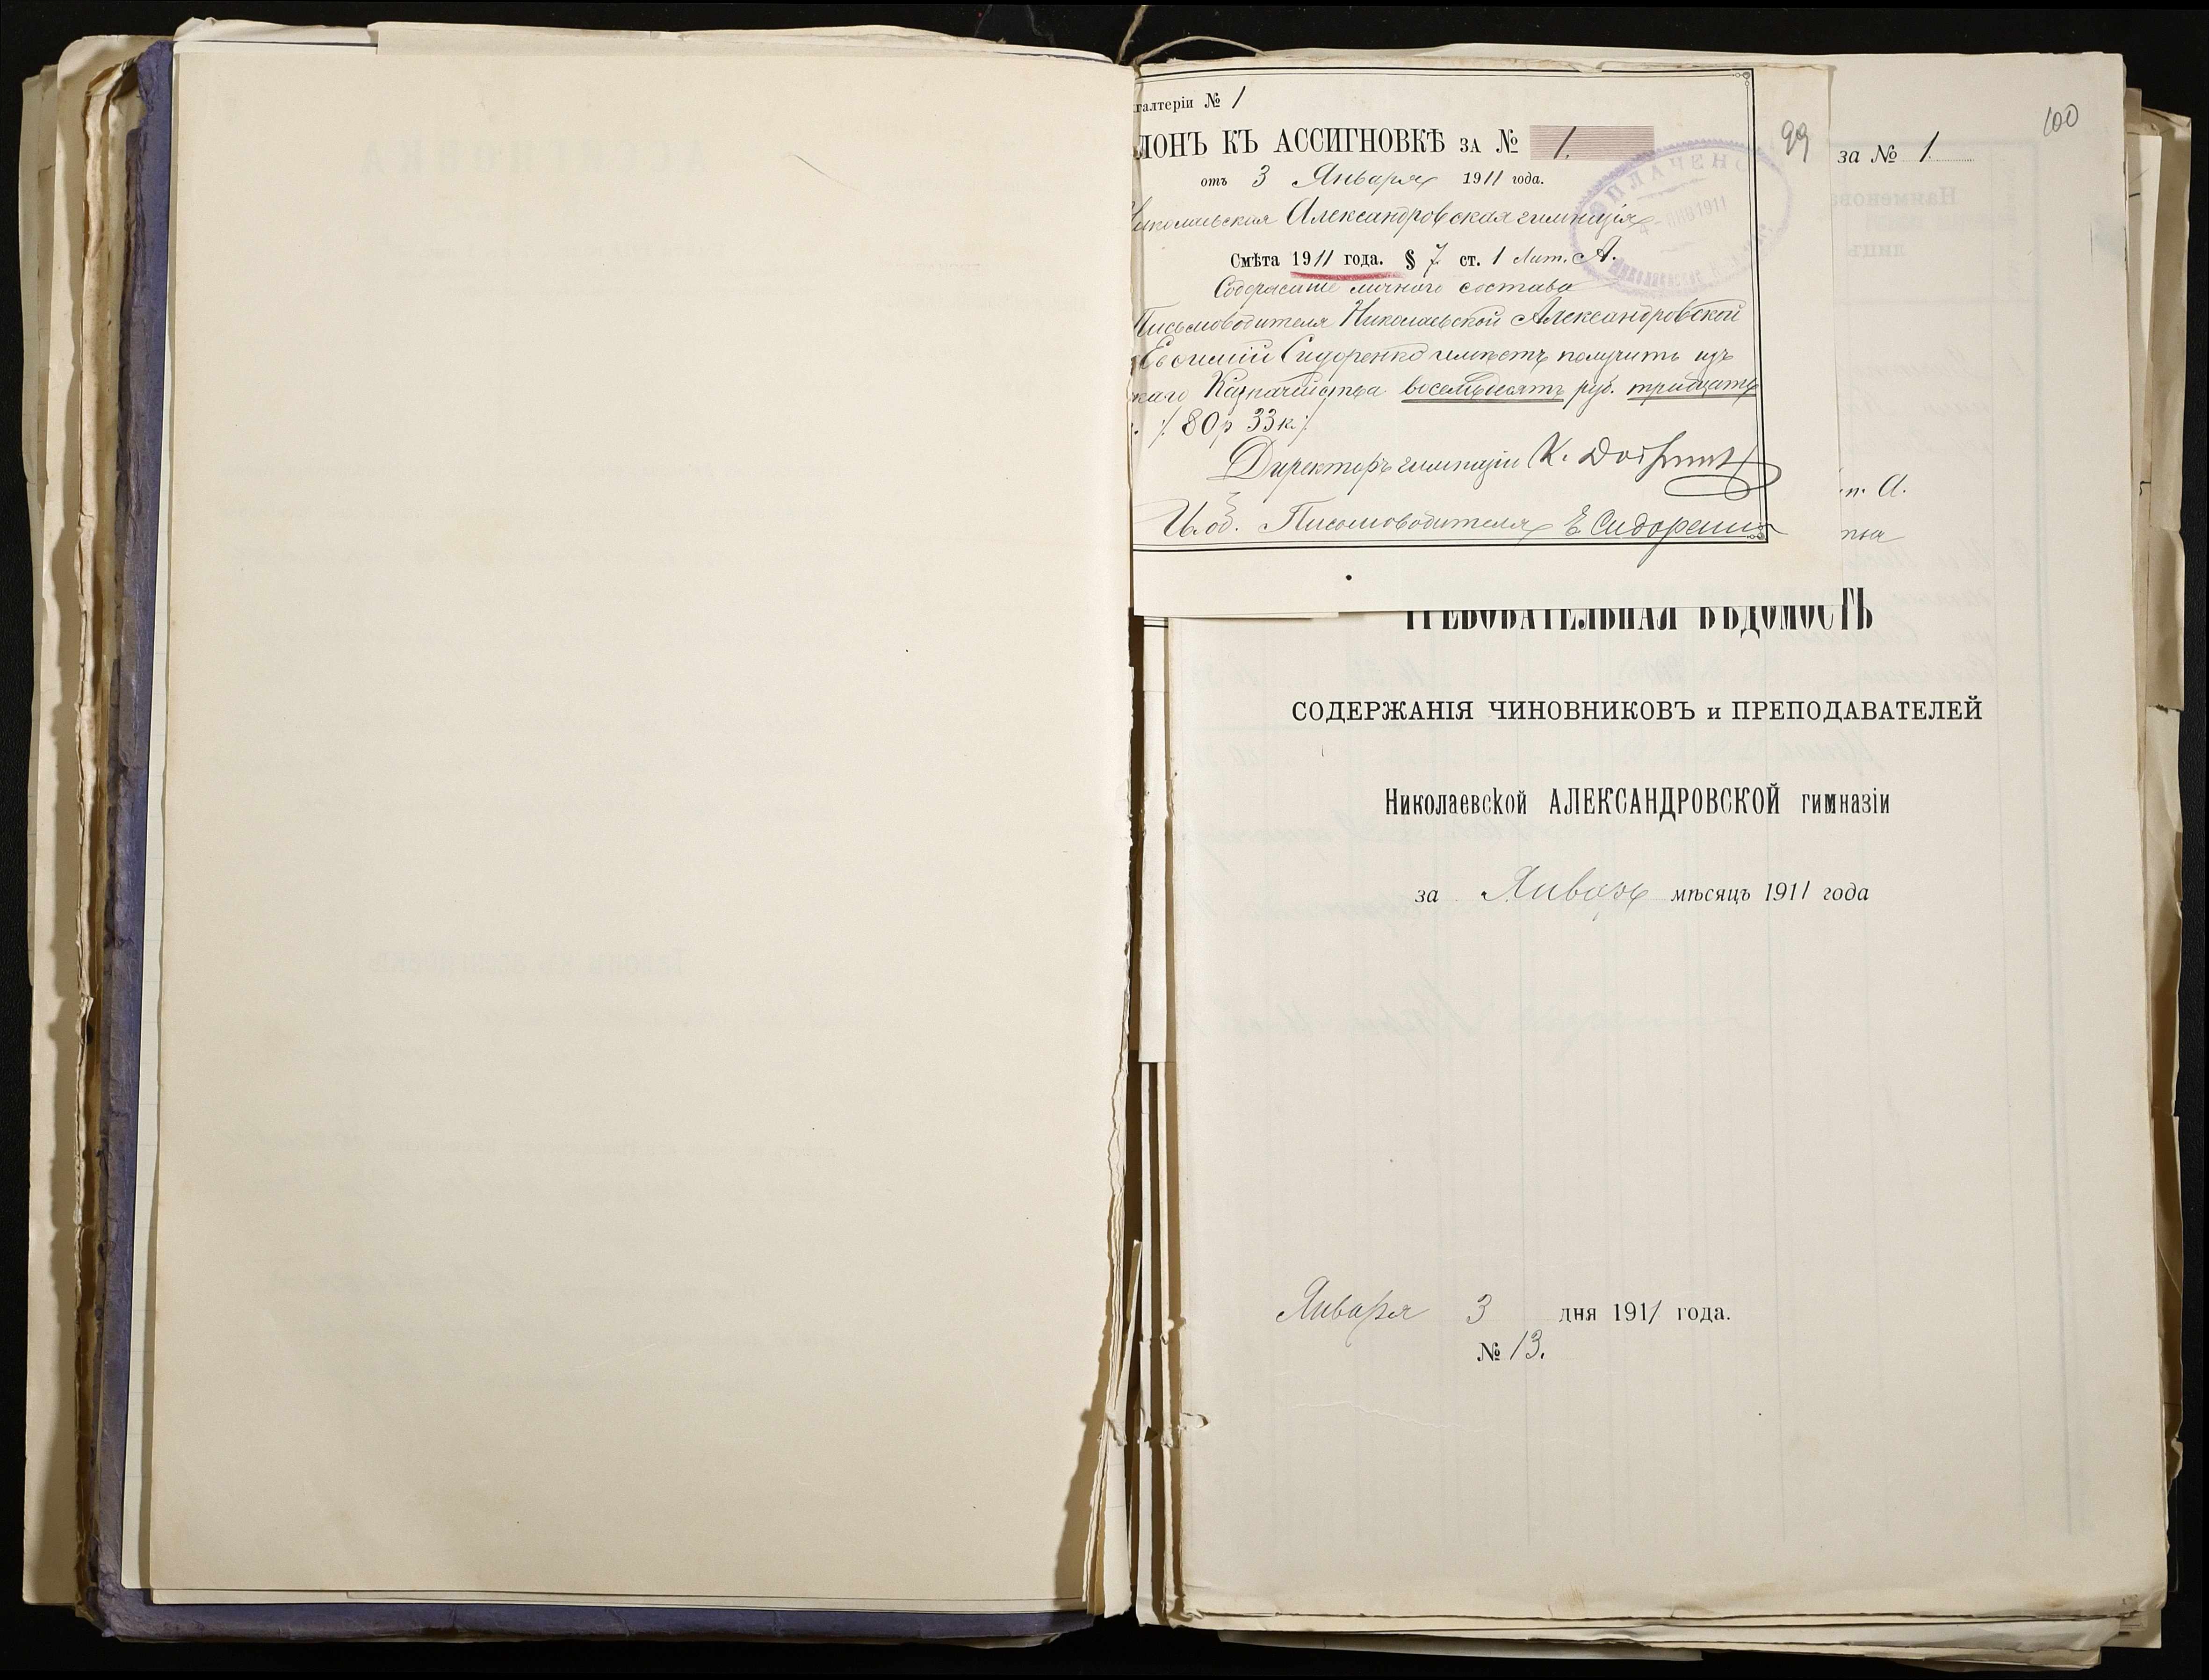 галтеріи № 1
ЛОНЪ КЪ АССИГНОВКѢ ЗА № 1.
отъ 3 Января 1911 года.
Николаевская Александровская гимназія
Смѣта 1911 года. § 7 ст. 1 Лит. А.
Содержание личного состава
Письмоводителя Николаевской Александровской
Сидоренко имѣетъ получить изъ
каго Казначейства восемьдесятъ руб. тридцать
80 р 33 к.
Директоръ гимназіи К.
И. об. Письмоводителя Е Сидоренко
ОПЛАЧЕНО
4 - ЯНВ 1911
99
за № 1
100
т. А.
тва
ТРЕБОВАТЕЛЬНАЯ ВѢДОМОСТЬ
СОДЕРЖАНІЯ ЧИНОВНИКОВЪ и ПРЕПОДАВАТЕЛЕЙ
Николаевской АЛЕКСАНДРОВСКОЙ гимназіи
за Январь мѣсяцъ 1911 года
Января 3 дня 1911 года.
№ 13.